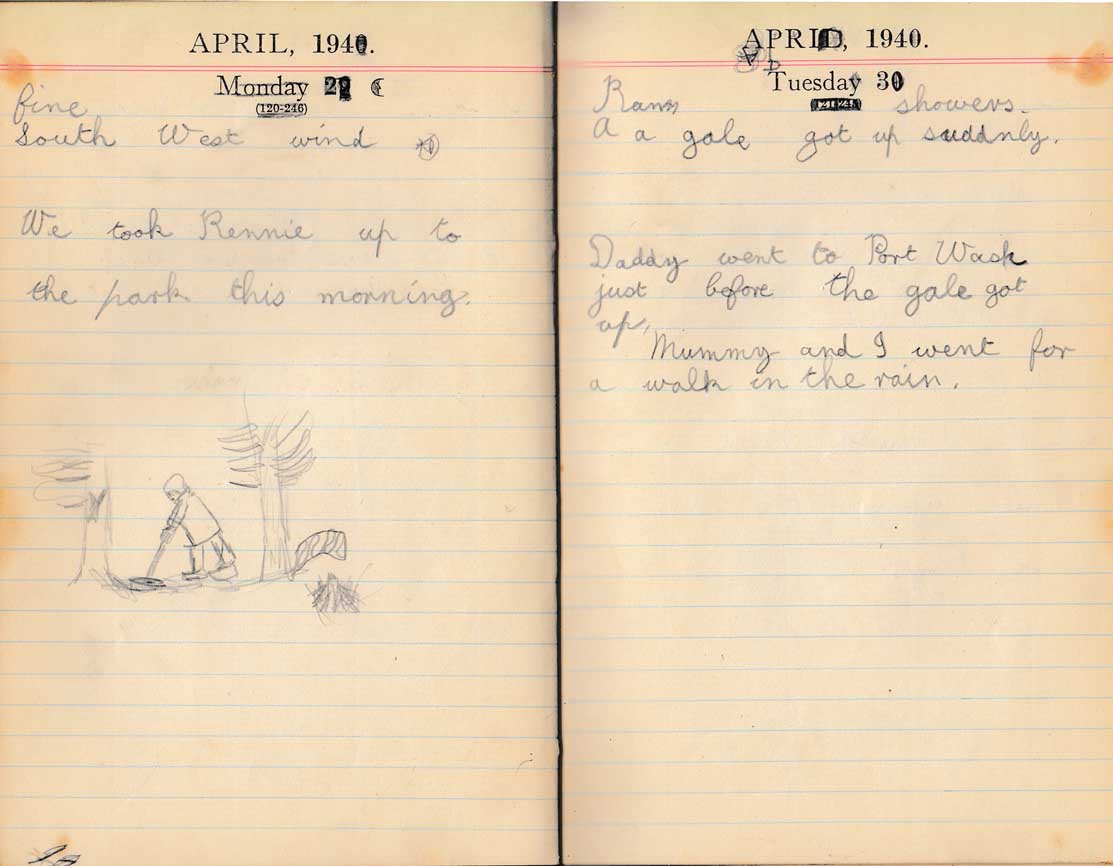 APRIL, 1940.
Monday 29
(120-246)
fine
South West wind
We took Rennie up to
the park this morning.
APRIL, 1940.
Tuesday 30
showers.
A a gale got up suddnly.
Daddy went to Port Wask
just before the gale got
up,
Mummy and I went for
a walk in the rain.